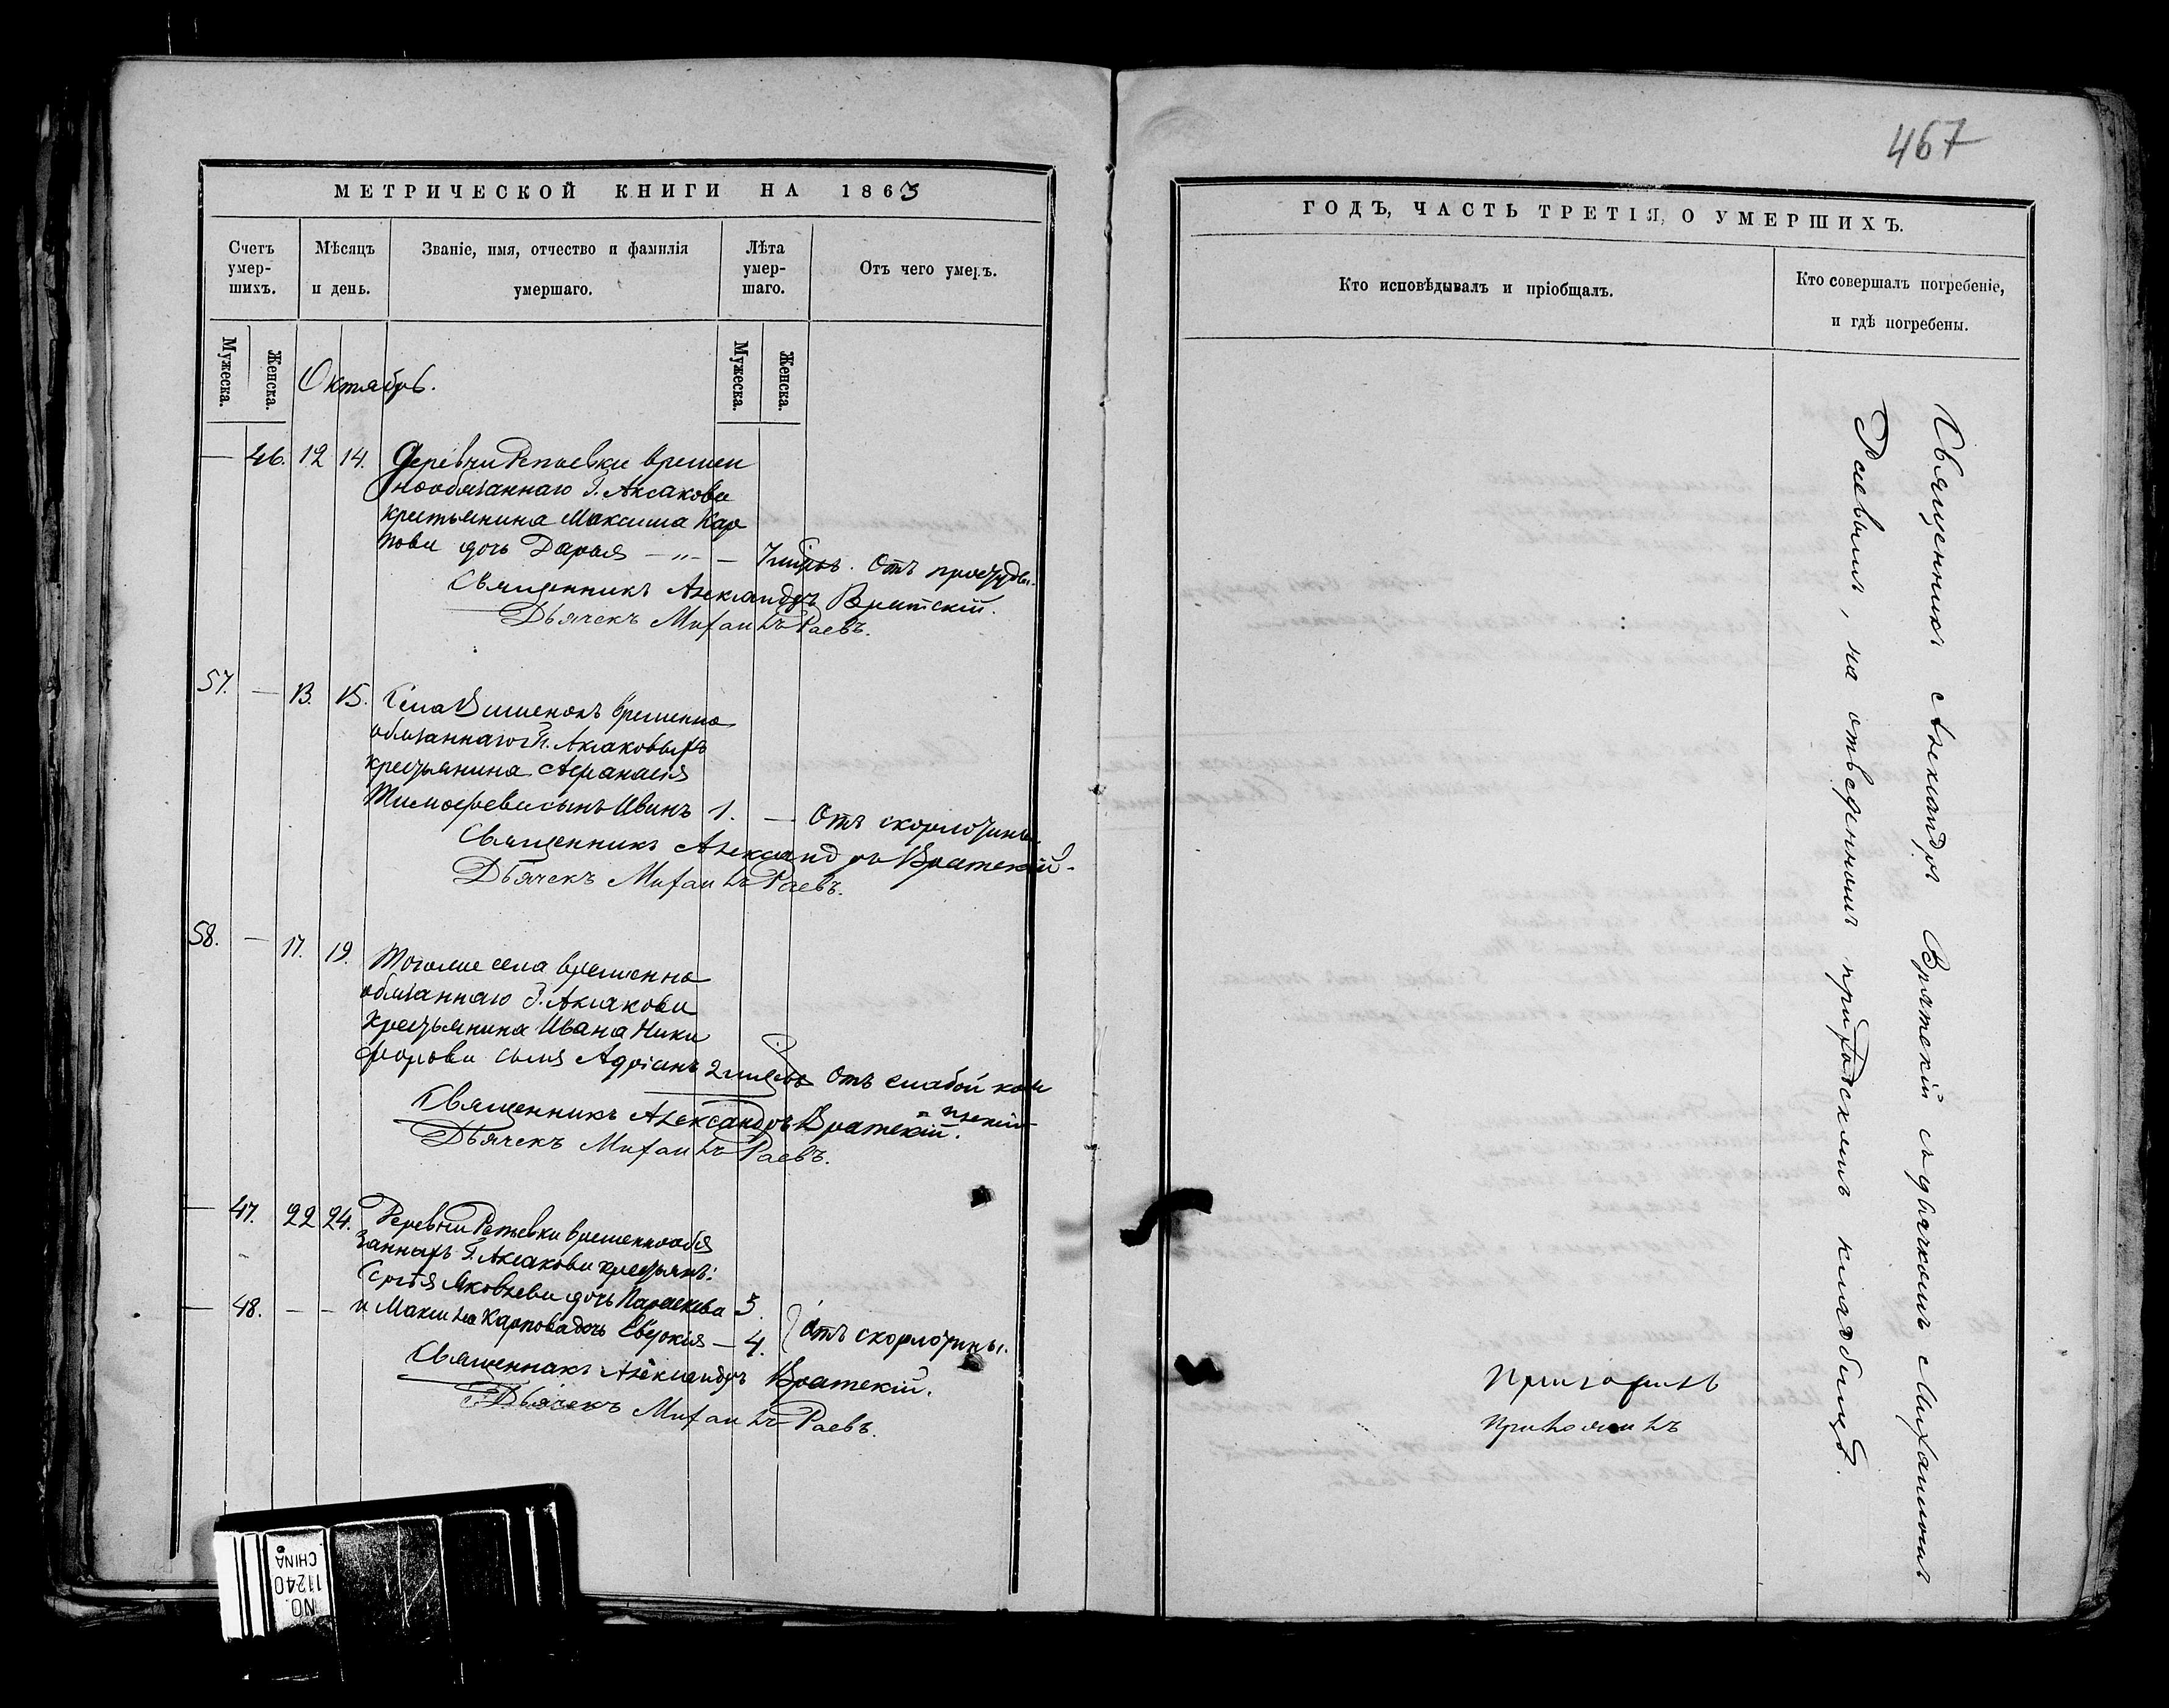 467
МЕТРИЧЕСКОЙ КНИГИ НА 1863
Счетъ умер-шихъ.
Мѣсяцъ и день.
Званіе, имя, отчество и фамилія умершаго.
Лѣта умер-шаго.
Отъ чего умеръ.
Мужеска.
Женска.
Мужеска.
Женска.
Октябрь.
— 46. 12 14. Деревни Репьевки времен
нообязаннаго Г. Аксакова
крестьянина Максима Кар
пова дочь Дарья — „ — Отъ простуды.
Священникъ Александръ Вратскій.
Дьячекъ Михаилъ Раевъ.
57. — 13. 15. Села Вишенокъ временно
обязаннаго Гг. Аксаковыхъ
крестьянина Афанасія
Тимофеева сынъ Иванъ 1. — Отъ скорлотины.
Священникъ Александръ Вратскій.
Дьячекъ Михаилъ Раевъ.
58. — 17. 19. Тогоже села временно
обязаннаго Г. Аксакова
крестьянина Ивана Ники
форова сынъ Адріанъ Отъ слабой ком
плекціи
Священникъ Александръ Вратскій.
Дьячекъ Михаилъ Раевъ.
— 47. 22 24. Деревни Репьевки временнообя
занныхъ Г. Аксакова крестьянъ:
Сергѣя Яковлева дочь Параскева 5.
— 48. — — и Максима Карпова дочь Евдокія — 4. Отъ скорлотины.
Священникъ Александръ Вратскій.
Дьячекъ Михаилъ Раевъ.
ГОДЪ, ЧАСТЬ ТРЕТІЯ, О УМЕРШИХЪ.
Кто исповѣдывалъ и пріобщалъ.
Кто совершалъ погребеніе, и гдѣ погребены.
Священникъ Александръ Вратскій съ дьячкомъ Михаиломъ
Раевымъ, на отведенномъ приходскимъ кладбищѣ.
NO.
11240
CHINA